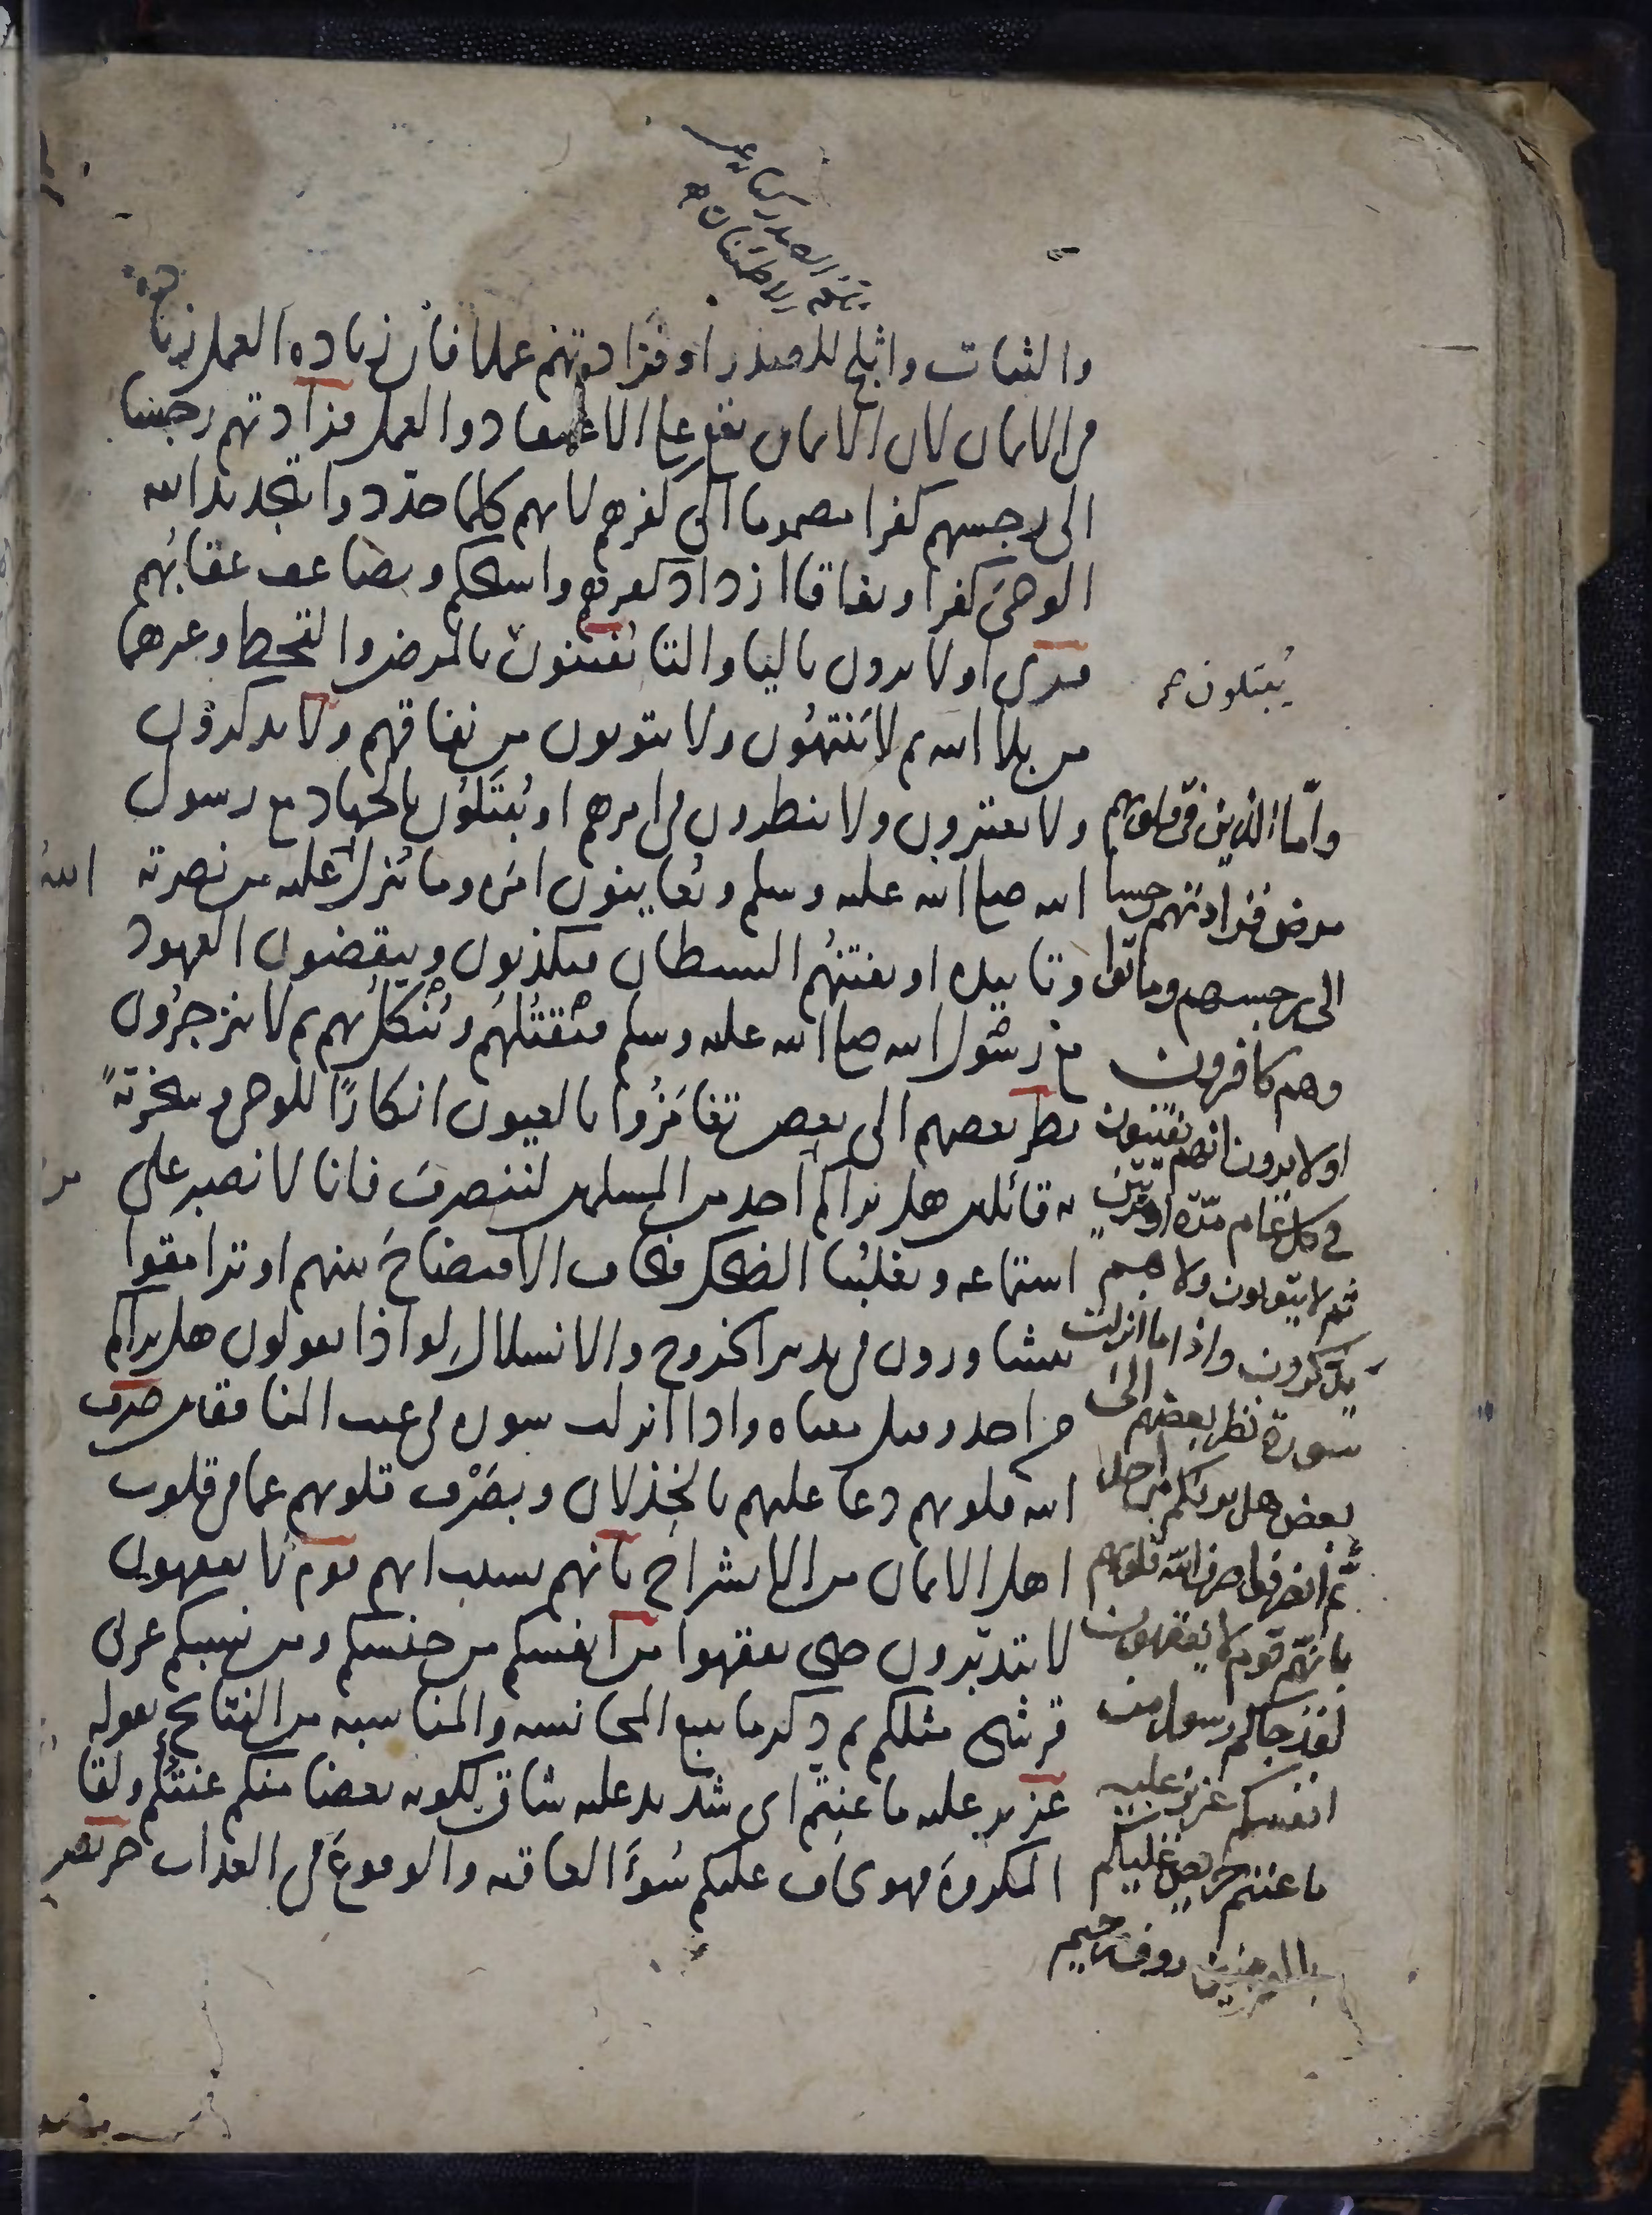 والثبات واثلج للصدر او فزادتهم عملا فان زياده العمل زياده
من الايمان لان الايمان يقع على الاعتقاد والعمل فزادتهم رجسا
الى رجسهم كفرا مضموما الى كفرهم لانهم كلما جددوا بتجديد الله
الوحى كفرا ونفاقا ازداد كفرهم واستحكم وتضاعف عقابهم
قرى اولا يرون باليا والتا يفتنون بالمرض والقحط وغيرهما
من بلا الله ثم لا ينتهون ولا يتوبون من نفاقهم ولا يذكرون
ولا يعتبرون ولا ينظرون فى امرهم او يبتلون بالجهاد مع رسول
الله صلى الله عليه وسلم ويعاينون امره وما ينزل الله عليه من نصرته
وتاييده او يفتنهم الشيطان فيكذبون وينقضون العهود
مع رسول الله صلى الله عليه وسلم فيقتلهم وينكل بهم ثم لا ينزجرون
نظر بعضهم الى بعض تغامزوا بالعيون انكارا للوحى وسخرية
به قائلين هل يراكم احد من المسلمين لننصرف فانا لا نصبر على
استماعه ويغلبنا الضحك فنخاف الافتضاح بينهم او ترامقوا
يتشاورون فى تدبير الخروج والانسلال لواذا يقولون هل يراكم
من احد وقيل معناه واذا انزلت سورة فى عيب المنافقين صرف
الله قلوبهم دعا عليهم بالخذلان وبصرف قلوبهم عما فى قلوب
اهل الايمان من الانشراح بانهم بسبب انهم قوم لا يفقهون
لا يتدبرون حتى يفقهوا من انفسكم من جنسكم ومن نسبكم عربى
قرشى مثلكم ثم ذكر ما يتبع المجانسه والمناسبه من النتائج بقوله
عزيز عليه ما عنتم اى شديد عليه شاق لكونه بعضا منكم عنتكم ولقا
المكروه فهو يخاف عليكم سوء العاقبه والوقوع فى العذاب حريص
يبتلون
واما الذين فى قلوبهم
مرض فزادتهم رجسا
الى رجسهم وماتوا
وهم كافرون
اولا يرون انهم يفتنون
فى كل عام مرة او مرتين
ثم لا يتوبون ولا هم
يذكرون واذا ما انزلت
سورة نظر بعضهم الى
بعض هل يريكم من احد
ثم انصرفوا صرف الله قلوبهم
بانهم قوم لا يفقهون
لقد جاكم رسول من
انفسكم عزيز عليه
ما عنتم حريص عليكم
بالمؤمنين روف رحيم